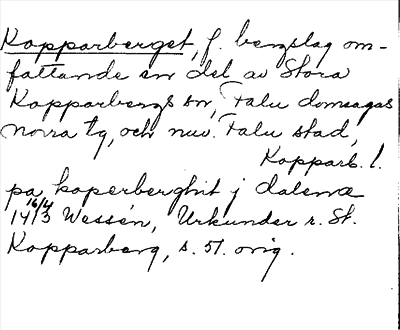 Kopparberget, f. bergslag om-
fattande en del av Stora
Kopparbergs sn, Falu domsagas
norra tg, och nuv. Falu stad,
Kopparb. l.
pa koperberghit j dalena
16/4
1413 Wessén, Urkunder r. St.
Kopparberg, s. 51. orig.